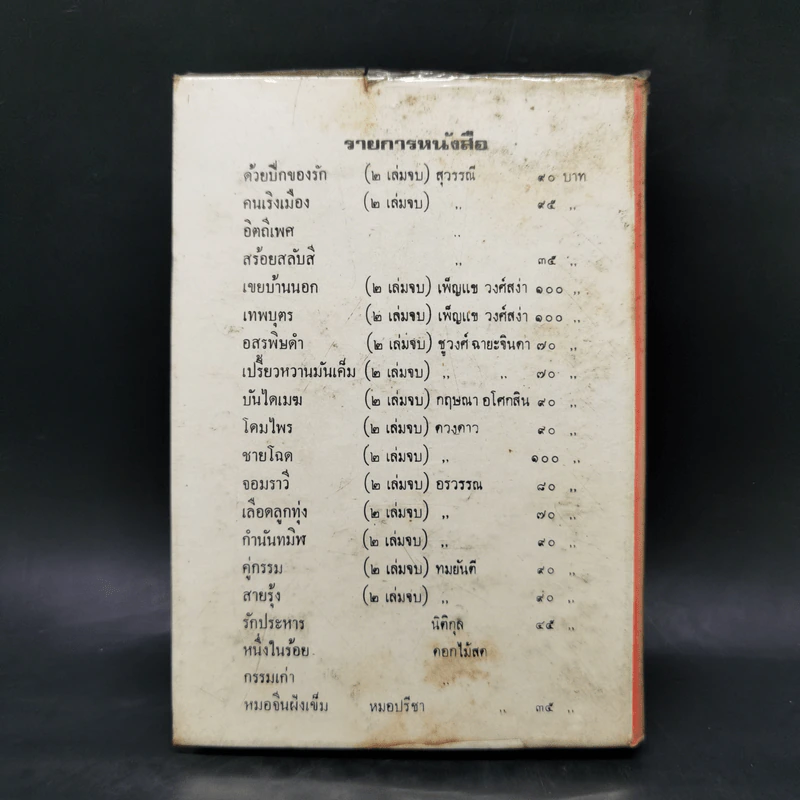 รายการหนังสือ
ด้วยปีกของรัก (๒ เล่มจบ) สุวรรณี ๙๐ บาท
คนเริงเมือง (๒ เล่มจบ) ,, ๙๕ ,,
อิตถีเพศ ,,
สร้อยสลับสี ,, ๓๕ ,,
เขยบ้านนอก (๒ เล่มจบ) เพ็ญแข วงศ์สง่า ๑๐๐ ,,
เทพบุตร (๒ เล่มจบ) เพ็ญแข วงศ์สง่า ๑๐๐ ,,
อสรพิษดำ (๒ เล่มจบ) ชูวงศ์ ฉายะจินดา ๗๐ ,,
เปรี้ยวหวานมันเค็ม (๒ เล่มจบ) ,, ,, ๗๐ ,,
บันไดเมฆ (๒ เล่มจบ) กฤษณา อโศกสิน ๙๐ ,,
โดมไพร (๒ เล่มจบ) ดวงดาว ๙๐ ,,
ชายโฉด (๒ เล่มจบ) ,, ๑๐๐ ,,
จอมราวี (๒ เล่มจบ) อรวรรณ ๘๐ ,,
เลือดลูกทุ่ง (๒ เล่มจบ) ,, ๗๐ ,,
กำนันทมิฬ (๒ เล่มจบ) ,, ๙๐ ,,
คู่กรรม (๒ เล่มจบ) ทมยันตี ๙๐ ,,
สายรุ้ง (๒ เล่มจบ) ,, ๙๐ ,,
รักประหาร นิติกุล ๔๕ ,,
หนึ่งในร้อย ดอกไม้สด
กรรมเก่า ,,
หมอจีนฝังเข็ม หมอปรีชา ,, ๓๕ ,,